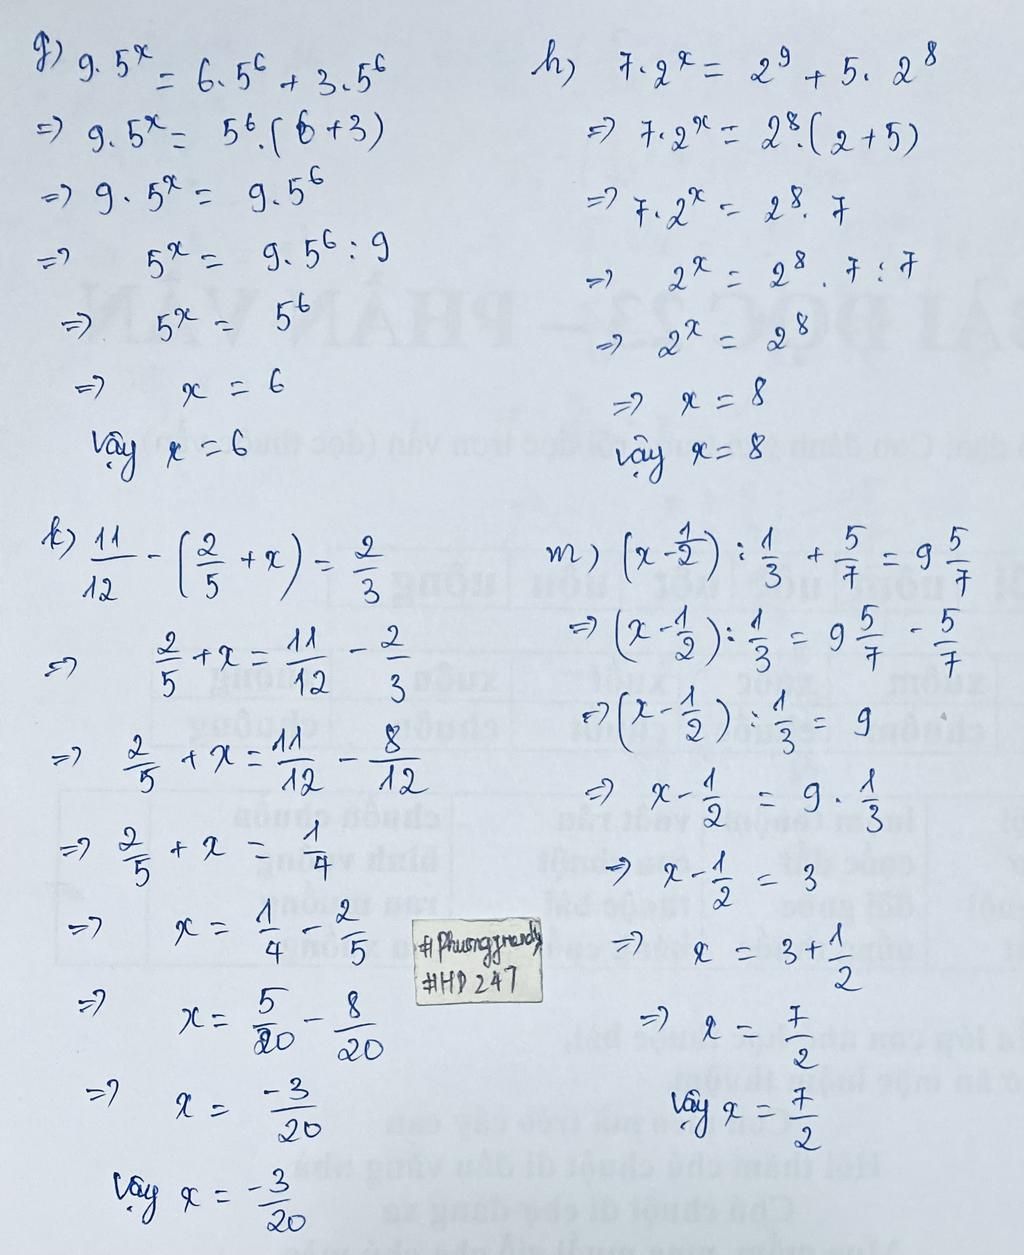 g) 9.5^x = 6.5^6 + 3.5^6
=> 9.5^x = 5^6.(6+3)
=> 9.5^x = 9.5^6
=> 5^x = 9.5^6 : 9
=> 5^x = 5^6
=> x = 6
Vậy x = 6
h) 7.2^x = 2^9 + 5.2^8
=> 7.2^x = 2^8.(2+5)
=> 7.2^x = 2^8.7
=> 2^x = 2^8.7:7
=> 2^x = 2^8
=> x = 8
Vậy x = 8
k) 11/12 - (2/5 + x) = 2/3
=> 2/5 + x = 11/12 - 2/3
=> 2/5 + x = 11/12 - 8/12
=> 2/5 + x = 1/4
=> x = 1/4 - 2/5
=> x = 5/20 - 8/20
=> x = -3/20
Vậy x = -3/20
m) (x - 1/2) : 1/3 + 5/7 = 9 5/7
=> (x - 1/2) : 1/3 = 9 5/7 - 5/7
=> (x - 1/2) : 1/3 = 9
=> x - 1/2 = 9 . 1/3
=> x - 1/2 = 3
=> x = 3 + 1/2
=> x = 7/2
Vậy x = 7/2
#HD247